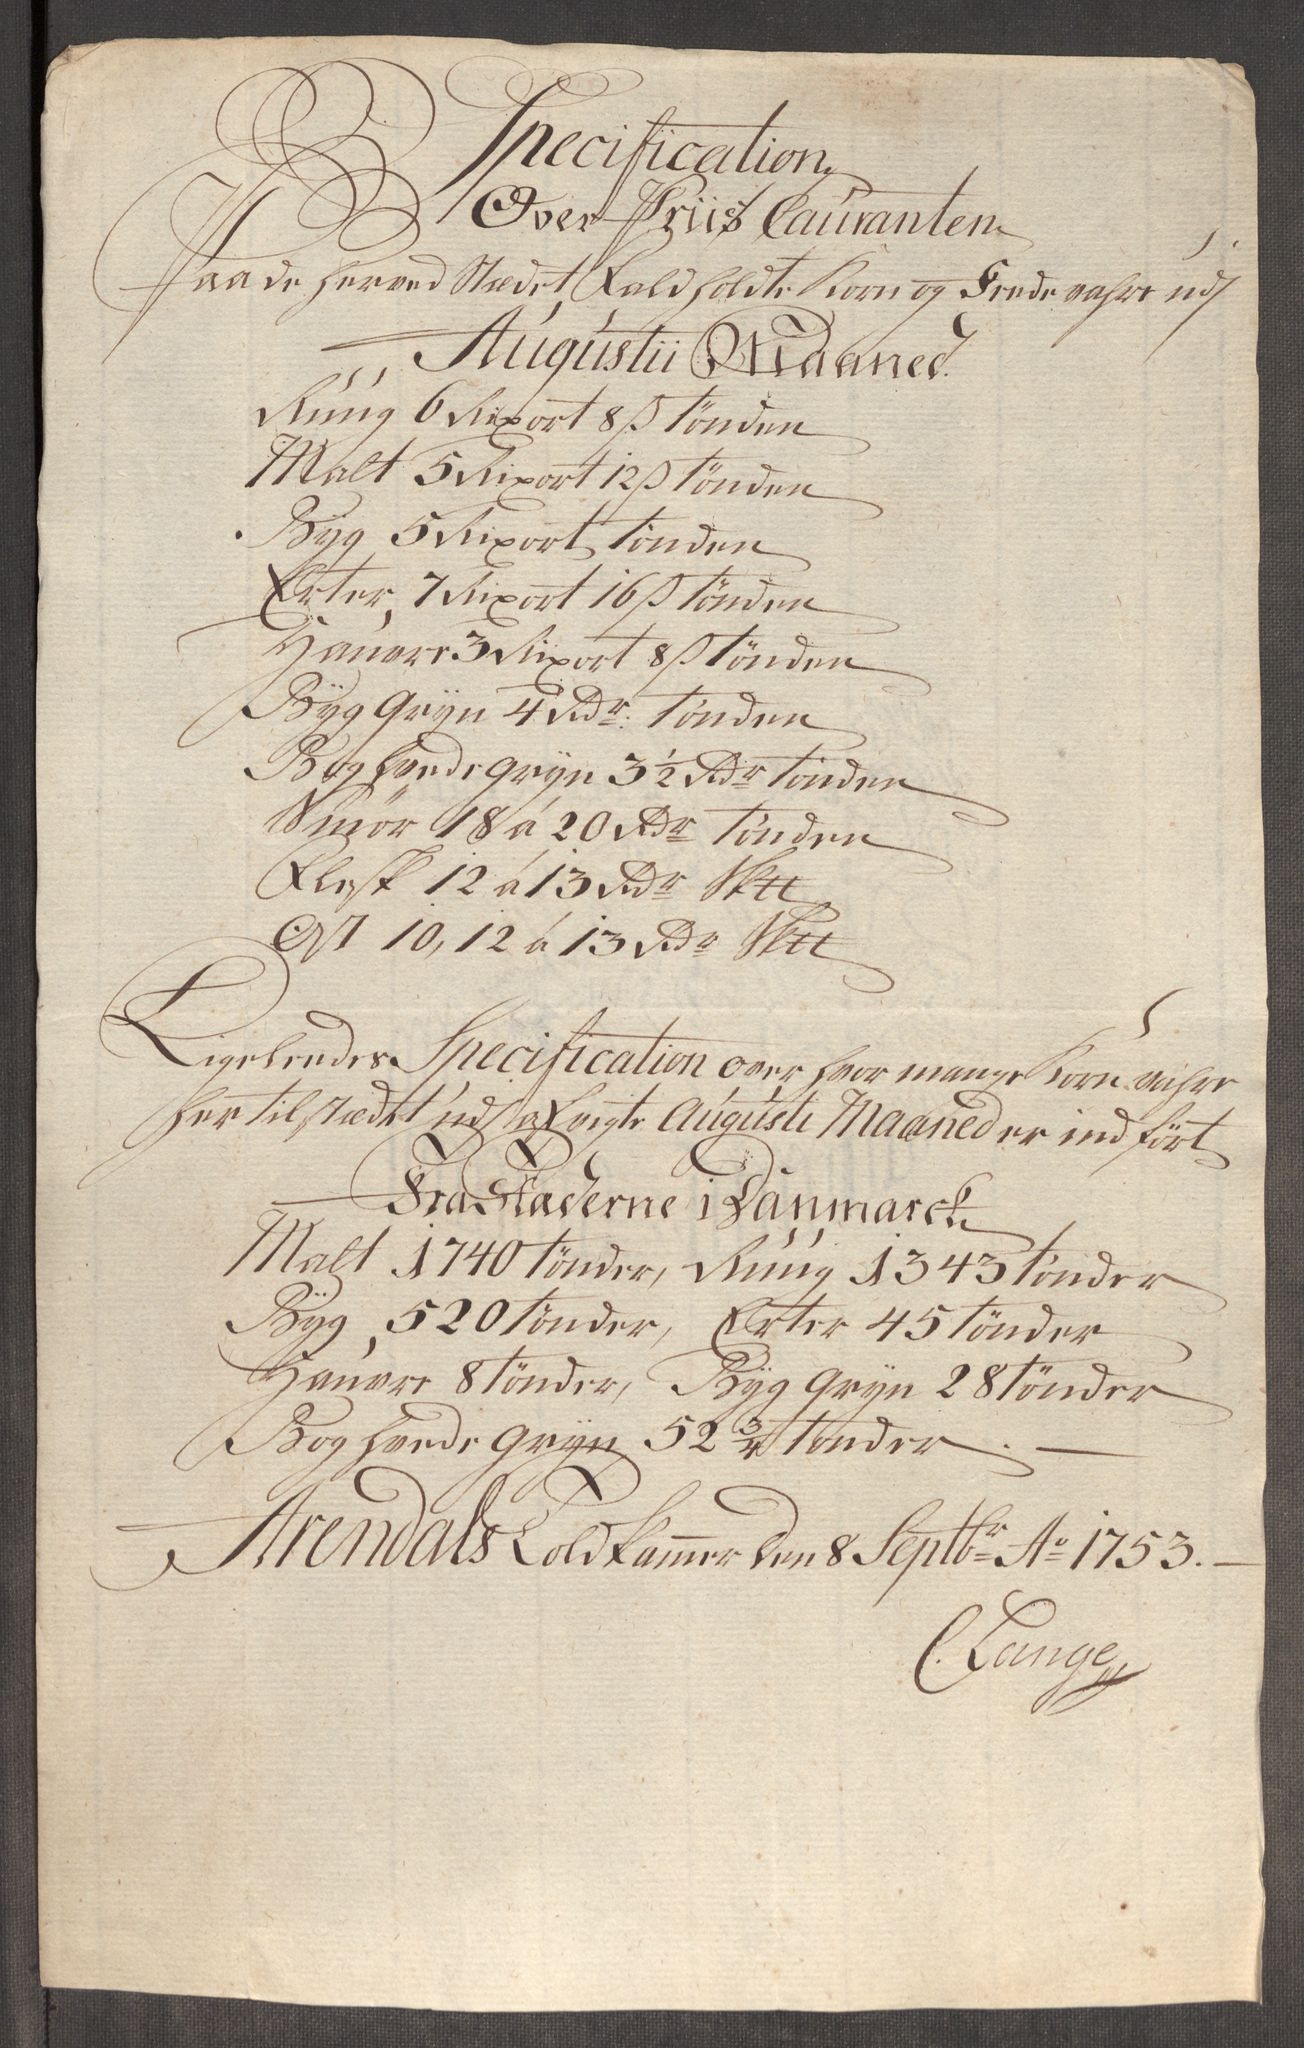 Specification
Over Priis Couranten
Paa de herved Stædet, Fald holdte Korn og Fede vahre udj
Augustii Maaned.
Rúúg 6 Rixort 8 ß tönden
Malt 5 Rixort 12 ß tönden
Byg 5 Rixort tönden
Erter 7 Rixort 16 ß tönden
Haúvre 3 Rixort 8 ß tönden
Byg Gryn 4 Rdr. tönden
Boghvede gryn 3 1/2 Rdr tönden
Smör 18 á 20 Rdr tönden
Flesk 12 á 13 Rdr Sk℔
Ost 10, 12 á 13 Rdr Sk℔
Ligeleedes Specification over hvor mange Korn vahre
her til stædet udj afvigte Augústi Maaned er ind fört
Fra Stæderne i Danmarck
Malt 1740 tönder, Rúúg 1343 tönder
Byg 520 tönder, Erter 45 tönder
Haúvre 8 tönder, Byg gryn 28 tönder
Boghvede gryn 52 3/4 tönder. —
Arendals Told Kammer den 8 Septbr. Ao 1753. —
C. Lange